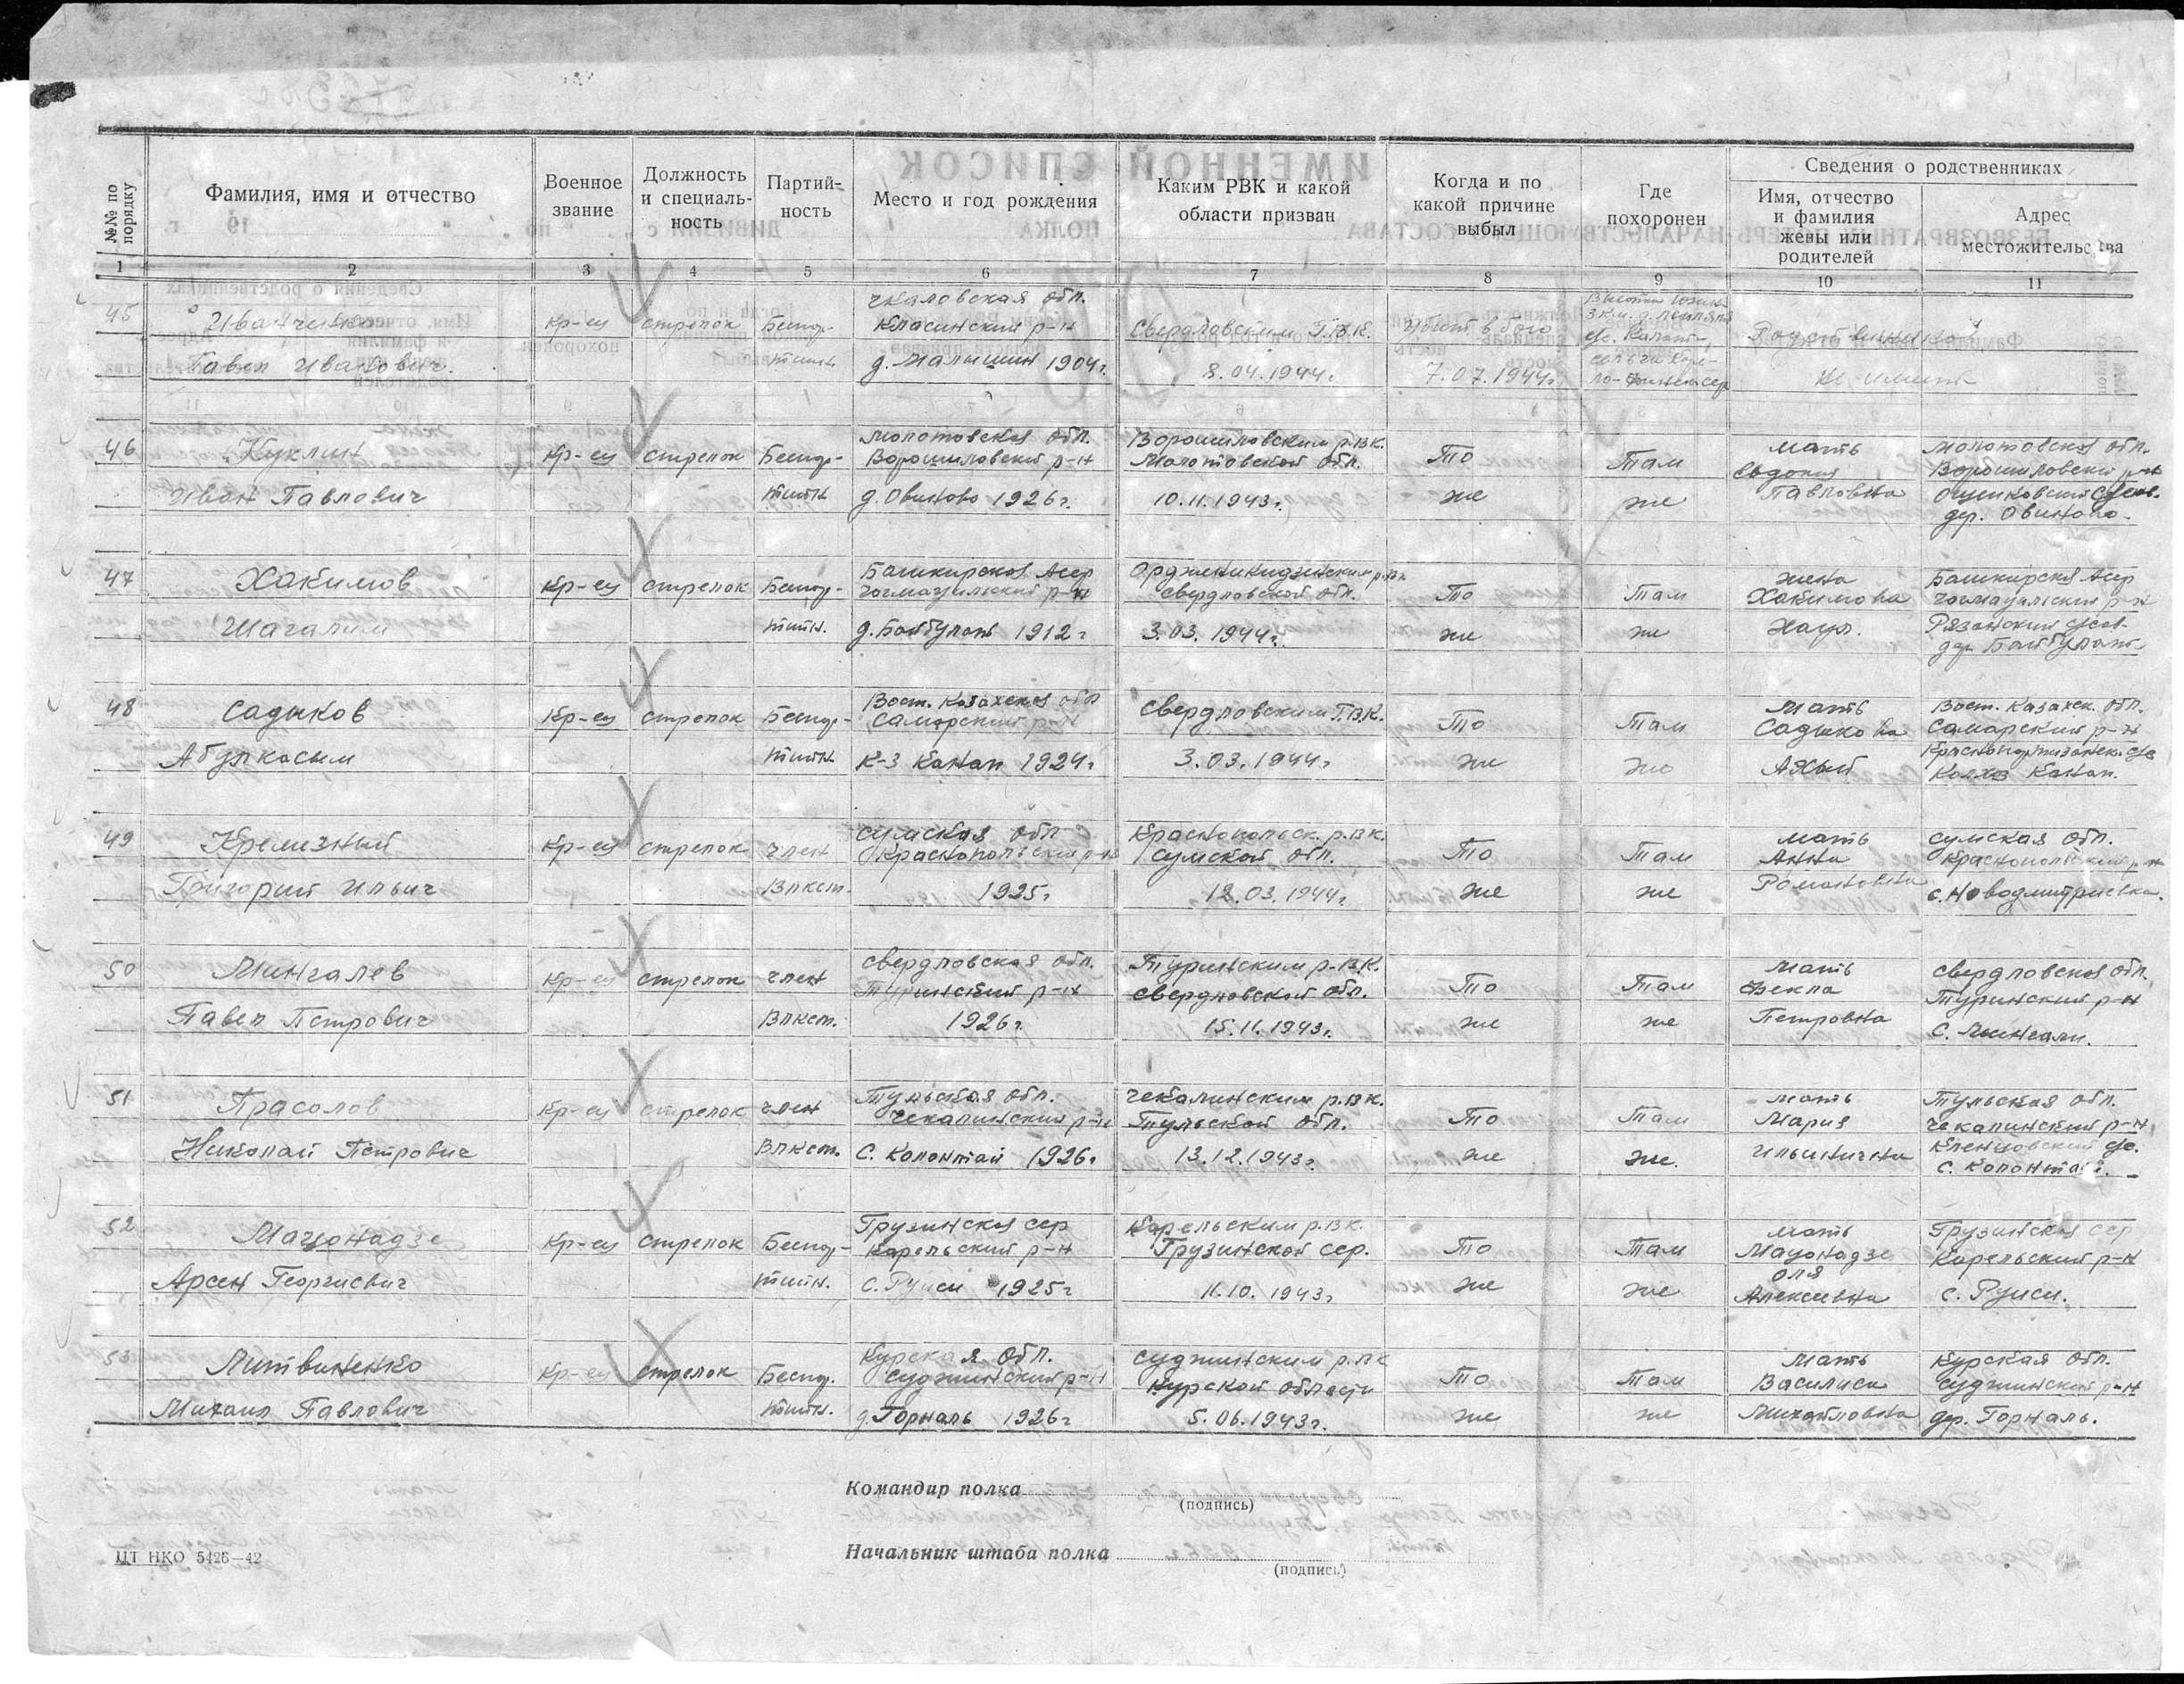 №№ по порядку
Фамилия, имя и отчество
Военное звание
Должность и специаль-ность
Партий-ность
Место и год рождения
Каким РВК и какой области призван
Когда и по какой причине выбыл
Где похоронен
Сведения о родственниках
Имя, отчество и фамилия жены или родителей
Адрес местожительства
1 2 3 4 5 6 7 8 9 10 11
45
Павел Иванович
Кр-ец
стрелок
Беспар-
тийн
Чкаловская обл.
р-н
д. Малышин 1904г.
Свердловским Г.В.К.
8.04.1944г.
убит в бою
7.07.1944г.
Высота
3 км.
Родственников
не имеет
46
Куклин
Иван Павлович
Кр-ец
стрелок
Беспар-
тийн
Молотовская обл.
Ворошиловский р-н
д. Овиново 1926г.
Ворошиловским р.в.к.
Молотовской обл.
10.11.1943г.
То
же
Там
же
мать
Евдокия
Павловна
Молотовская обл.
Ворошиловский р-н
дер. Овиново
47
Хакимов
Шагалим
Кр-ец
стрелок
Беспар-
тийн.
Башкирская Асср
р-н
д. Байбулат 1912г
Орджоникидзевским р.в.к
Свердловской обл.
3.03.1944г.
То
же
Там
же
жена
Хакимова
Башкирская Асср
р-н
Рязанский с/сов.
дер Байбулат
48
Садыков
Абдулкасым
Кр-ец
стрелок
Беспар-
тийн
Вост. Казахская обл
Самарский р-н
К-з Канап 1924г
Свердловским Г.В.К.
3.03.1944г
То
же
Там
же
Мать
Садыкова
Вост. Казахск. обл.
Самарский р-н
Колхоз Канап.
49
Кремезный
Григорий Ильич
Кр-ец
стрелок
член
Влксм.
Сумская обл
Краснопольский р-н
1925г
Краснопольск. р.в.к.
Сумской обл.
12.03.1944г
То
же
Там
же
мать
Анна
Романовна
Сумская обл.
Краснопольский р-н
с. Новодмитриевка.
50
Мингалев
Павел Петрович
Кр-ец
стрелок
член
Влксм.
Свердловская обл.
Туринский р-н
1926г.
Туринским р.в.к.
Свердловской обл.
15.11.1943г.
То
же
Там
же
Мать
Фекла
Петровна
Свердловская обл.
Туринский р-н
с. Мингали.
51
Прасолов
Николай Петрович
Кр-ец
стрелок
член
Влксм.
Тульская обл.
Чекалинский р-н
С. Колонтай 1926г
Чекалинским р.в.к.
Тульской обл.
13.12.1943г.
То
же
Там
же.
мать
Мария
Ильинична
Тульская обл.
Чекалинский р-н
с. Колонтай.
52
Мацонадзе
Арсен Георгиевич
Кр-ец
стрелок
Беспар-
тийн.
Грузинская сср
Карельский р-н
с. Руиси 1925г
Карельским р.в.к.
Грузинской сср.
11.10.1943г
То
же
Там
же
мать
Мацонадзе
Оля
Алексеевна
Грузинская сср
Карельский р-н
с. Руиси.
53
Литвиненко
Михаил Павлович
Кр-ец
стрелок
Беспар.
тийн.
Курская обл.
Суджинский р-н
д. Горналь 1926г
Суджинским р.в.к
Курской области
5.06.1943г.
То
же
Там
же
Мать
Василиса
Михайловна
Курская обл.
Суджинский р-н
дер. Горналь.
Командир полка
(подпись)
Начальник штаба полка
(подпись)
ЦТ НКО 5425—42